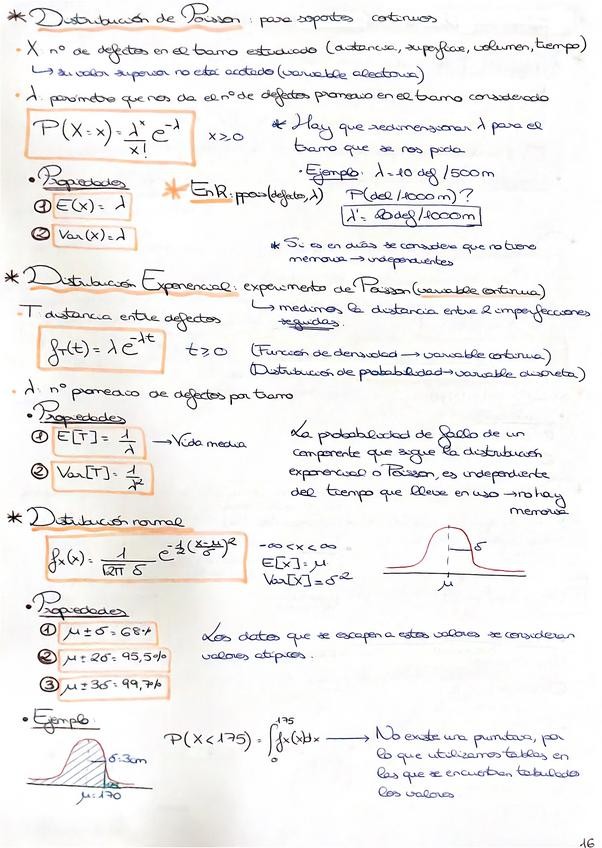 * Distribución de Poisson: para soportes continuos
· X nº de defectos en el tramo estudiado (distancia, superficie, volumen, tiempo)
↳ su valor superior no está acotado (variable aleatoria)
· λ parámetro que nos da el nº de defectos promedio en el tramo considerado
P(X=x) = λ^x/x! e^-λ   x≥0
* Hay que redimensionar λ para el
tramo que se nos pida
· Ejemplo: λ=10 def/500m
P(def/1000m)?
λ'= 20def/1000m
· Propiedades
① E(X) = λ
② Var(X) = λ
* En R: ppois(defectos, λ)
* Si es en días se considera que no tiene
memoria → independientes
* Distribución Exponencial: experimento de Poisson (variable continua)
↳ medimos la distancia entre 2 imperfecciones
seguidas.
- T distancia entre defectos
fT(t) = λ e^-λt   t≥0
(Función de densidad → variable continua)
(Distribución de probabilidad → variable discreta)
· λ: nº promedio de defectos por tramo
· Propiedades
① E[T] = 1/λ → Vida media
② Var[T] = 1/λ²
La probabilidad de fallo de un
componente que sigue la distribución
exponencial o Poisson, es independiente
del tiempo que lleve en uso → no hay
memoria
* Distribución normal
fx(x) = 1/(√2π σ) e^-½((x-μ)/σ)²
-∞<x<∞
E[x]=μ
Var[x]=σ²
σ
μ
· Propiedades
① μ±σ=68%
② μ±2σ=95,5%
③ μ±3σ=99,7%
Los datos que se escapen a estos valores se consideran
valores atípicos.
· Ejemplo:
σ=3cm
μ=170
P(X<175) = ∫₀¹⁷⁵ fx(x)dx →
No existe una primitiva, por
lo que utilizamos tablas en
las que se encuentran tabulados
los valores
16